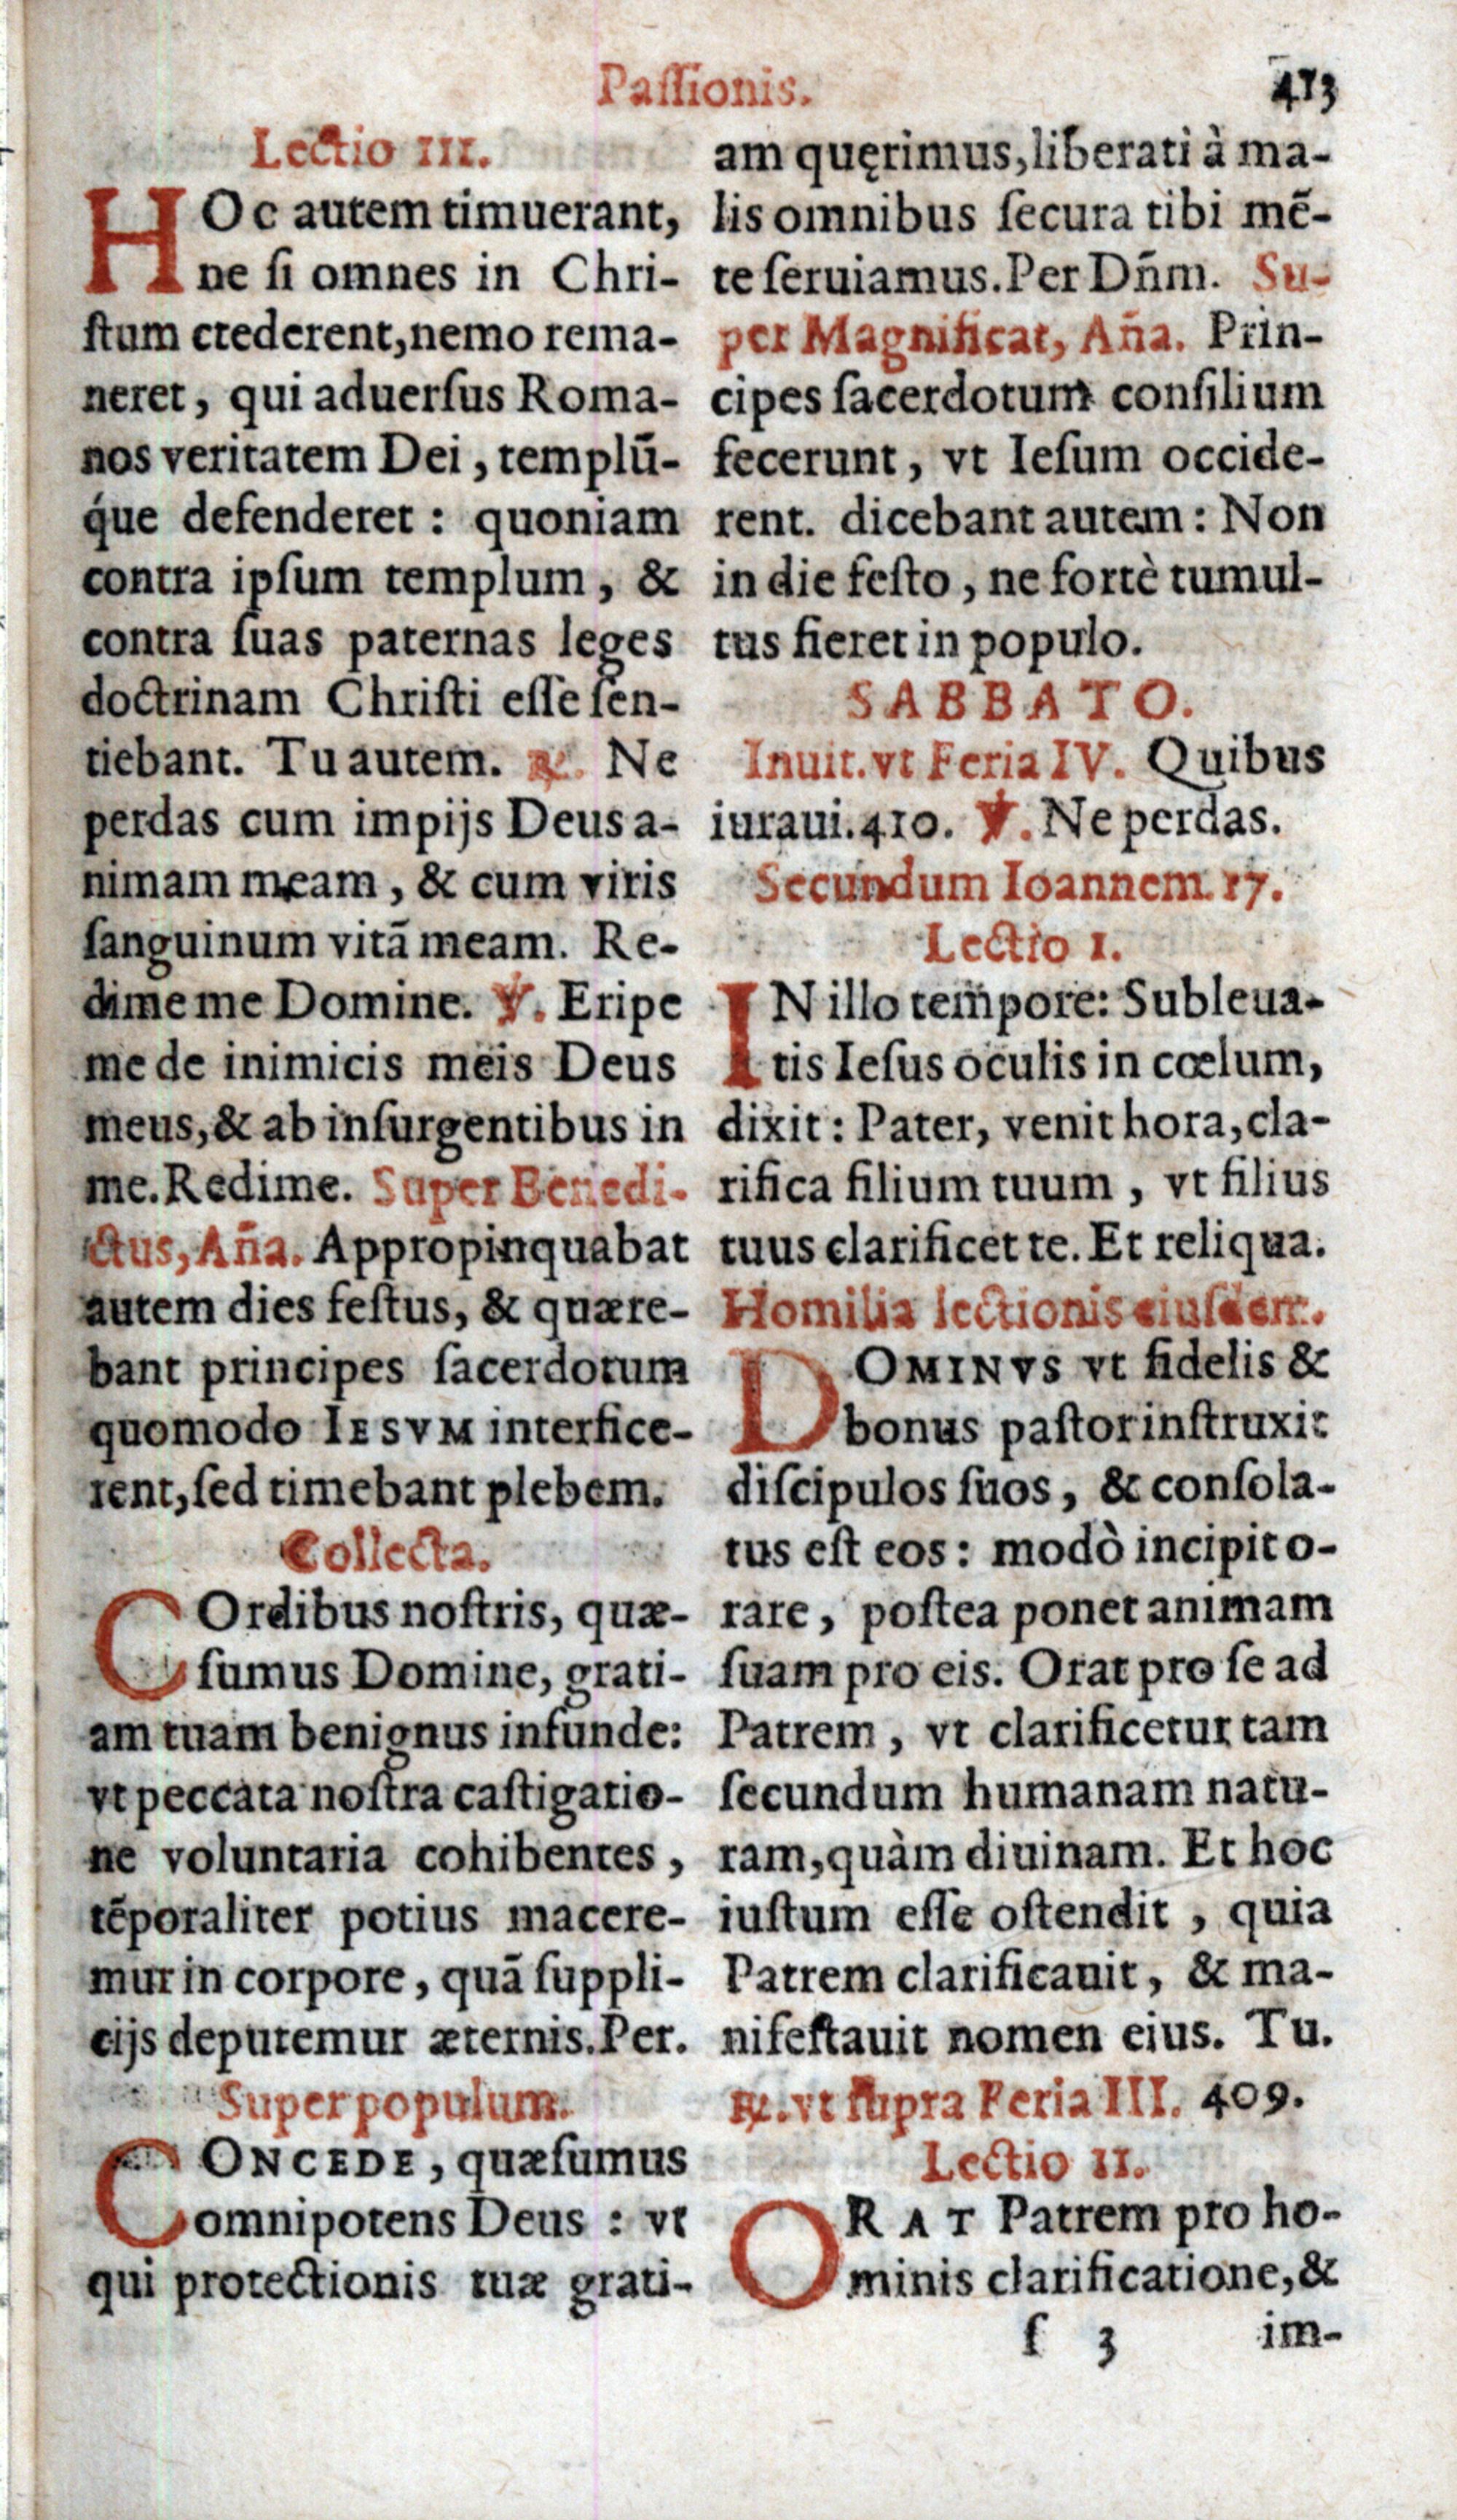 Passionis. 413
Lectio III.
HOc autem timuerant,
ne si omnes in Chri-
stum crederent, nemo rema-
neret, qui aduersus Roma-
nos veritatem Dei, templū-
q́ue defenderet: quoniam
contra ipsum templum, &
contra suas paternas leges
doctrinam Christi esse sen-
tiebant. Tu autem. ℟. Ne
perdas cum impijs Deus a-
nimam meam, & cum viris
sanguinum vitā meam. Re-
dime me Domine. ℣. Eripe
me de inimicis meis Deus
meus, & ab insurgentibus in
me. Redime. Super Benedi-
ctus, Aña. Appropinquabat
autem dies festus, & quære-
bant principes sacerdotum
quomodo IESVM interfice-
rent, sed timebant plebem.
Collecta.
COrdibus nostris, quæ-
sumus Domine, grati-
am tuam benignus infunde:
vt peccata nostra castigatio-
ne voluntaria cohibentes,
tēporaliter potius macere-
mur in corpore, quā suppli-
cijs deputemur æternis. Per.
Super populum.
CONCEDE, quæsumus
omnipotens Deus: vt
qui protectionis tuæ grati-
am quęrimus, liberati à ma-
lis omnibus secura tibi mē-
te seruiamus. Per Dñm. Su-
per Magnificat, Aña. Prin-
cipes sacerdotum consilium
fecerunt, vt Iesum occide-
rent. dicebant autem: Non
in die festo, ne fortè tumul-
tus fieret in populo.
SABBATO.
Inuit. vt Feria IV. Quibus
iuraui. 410. ℣. Ne perdas.
Secundum Ioannem. 17.
Lectio I.
IN illo tempore: Subleua-
tis Iesus oculis in cœlum,
dixit: Pater, venit hora, cla-
rifica filium tuum, vt filius
tuus clarificet te. Et reliqua.
Homilia lectionis eiusdem.
DOMINVS vt fidelis &
bonus pastor instruxit
discipulos suos, & consola-
tus est eos: modò incipit o-
rare, postea ponet animam
suam pro eis. Orat pro se ad
Patrem, vt clarificetur tam
secundum humanam natu-
ram, quàm diuinam. Et hoc
iustum esse ostendit, quia
Patrem clarificauit, & ma-
nifestauit nomen eius. Tu.
℟. vt supra Feria III. 409.
Lectio II.
ORAT Patrem pro ho-
minis clarificatione, &
ſ 3 im-